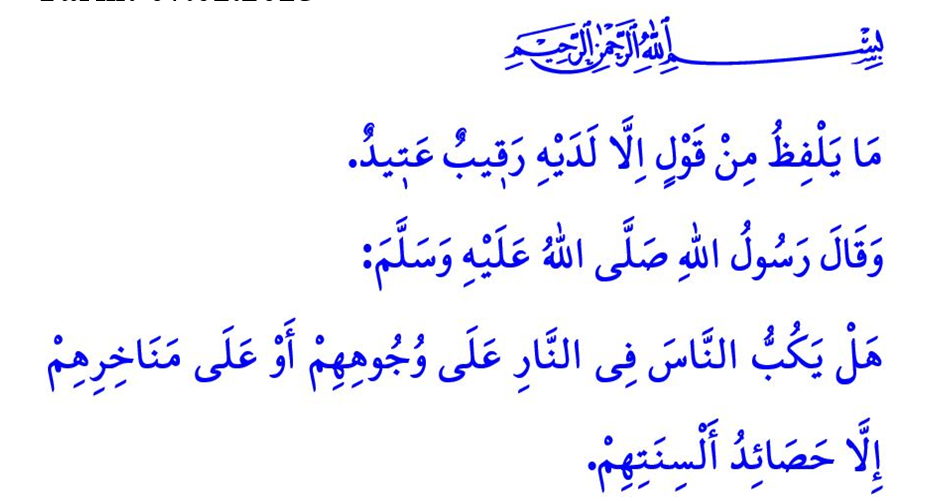 بِسْمِ اللهِ الرَّحْمٰنِ الرَّحِيمِ
مَا يَلْفِظُ مِنْ قَوْلٍ اِلَّا لَدَيْهِ رَق۪يبٌ عَت۪يدٌ.
وَقَالَ رَسُولُ اللهِ صَلَّى اللهُ عَلَيْهِ وَسَلَّمَ:
هَلْ يَكُبُّ النَّاسَ فِى النَّارِ عَلَى وُجُوهِهِمْ أَوْ عَلَى مَنَاخِرِهِمْ
إِلَّا حَصَائِدُ أَلْسِنَتِهِمْ.